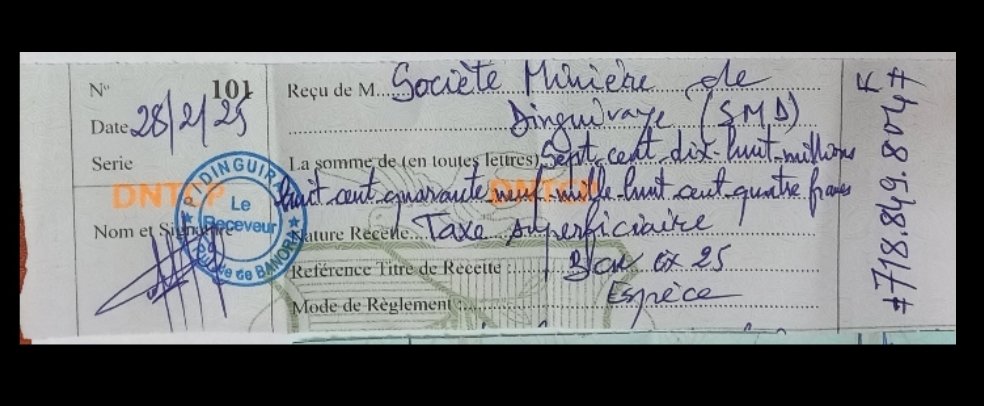 N° 101
Date 28/2/25
Serie
DNTCP
Nom et Signature
DINGUIRA
Le
Receveur
de BANORA
Reçu de M... Société Minière de
Dinguiraye (SMD)
La somme de (en toutes lettres) Sept cent dix-huit-millions
huit cent quarante neuf mille huit cent quatre francs
Nature Recette... Taxe superficiaire
Reférence Titre de Recette : ex 25
Mode de Règlement : Espèce
#718.849.804# F